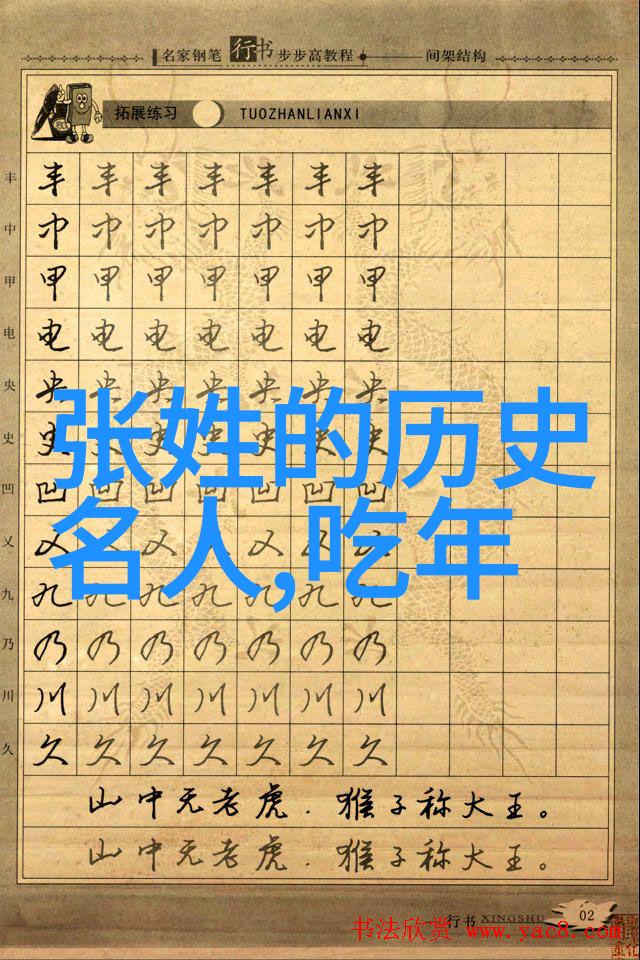 名家钢笔 行书 步步高教程 间架结构
拓展练习 TUOZHANLIANXI
丰 丰 丰 丰 丰 丰 丰 丰
中 中 中 中 中 中 中 中
甲 甲 甲 甲 甲 甲 甲 甲
电 电 电 电 电 电 电 电
央 央 央 央 央 央 央 央
张姓的历史
史 史 史 史 史 史 史 史
凹 凹 凹 凹 凹 凹 凹 凹
名人,吃年
乂 乂 乂 乂 乂 乂 乂 乂
九 九 九 九 九 九 九 九
乃 乃 乃 乃 乃 乃 乃 乃
川 川 川 川 川 川 川 川
久 久 久 久 久 久 久 久
山中无老虎.猴子称大王。
山中无老虎.猴子称大王。
行书 XINGSHU 02
书法欣赏 www.yac8.com